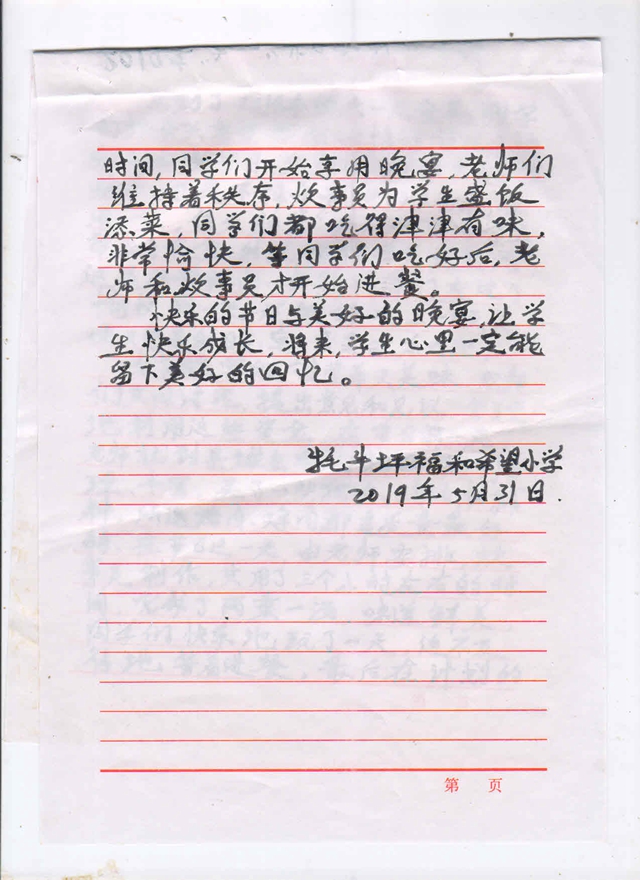 时间，同学们开始享用晚宴，老师们
维持着秩序，炊事员为学生盛饭
添菜，同学们都吃得津津有味，
非常愉快，等同学们吃好后，老
师和炊事员才开始进餐。
快乐的节日与美好的晚宴，让学
生快乐成长，将来，学生心里一定能
留下美好的回忆。
牦牛坪福和希望小学
2019年5月31日.
第 页